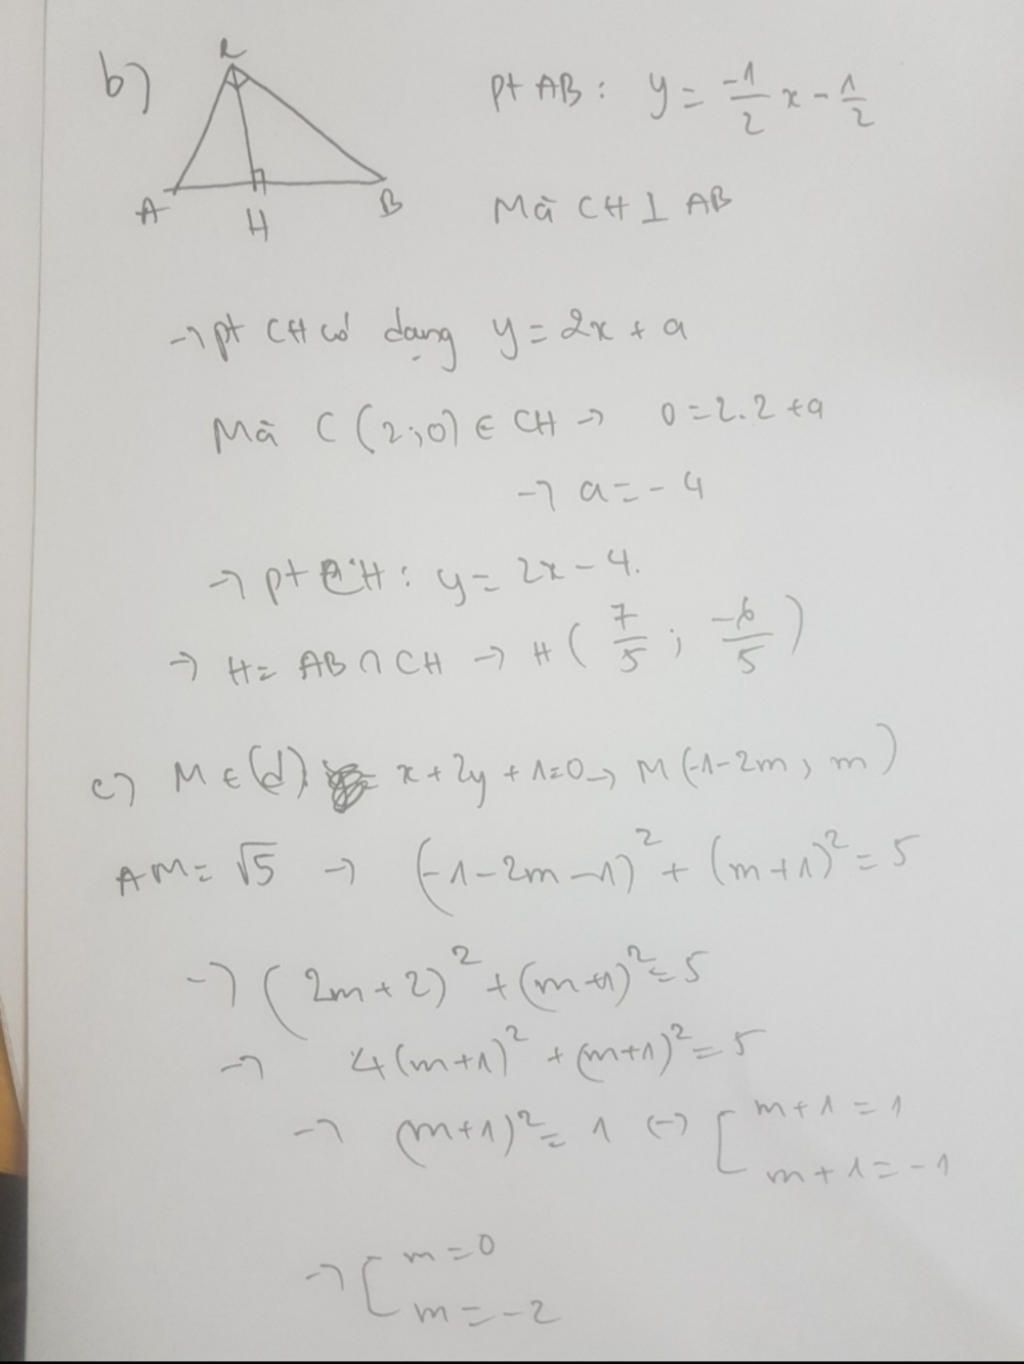 b)
C
A
H
B
pt AB: y = -1/2 x - 1/2
Mà CH ⊥ AB
→ pt CH có dạng y = 2x + a
Mà C (2;0) ∈ CH → 0 = 2.2 + a
→ a = -4
→ pt CH: y = 2x - 4.
→ H = AB ∩ CH → H (7/5; -6/5)
c) M ∈ (d): x + 2y + 1 = 0 → M (-1-2m, m)
AM = √5 → (-1-2m-1)² + (m+1)² = 5
→ (2m+2)² + (m+1)² = 5
→ 4(m+1)² + (m+1)² = 5
→ (m+1)² = 1 (→) [ m+1 = 1
m+1 = -1
→ [ m = 0
m = -2